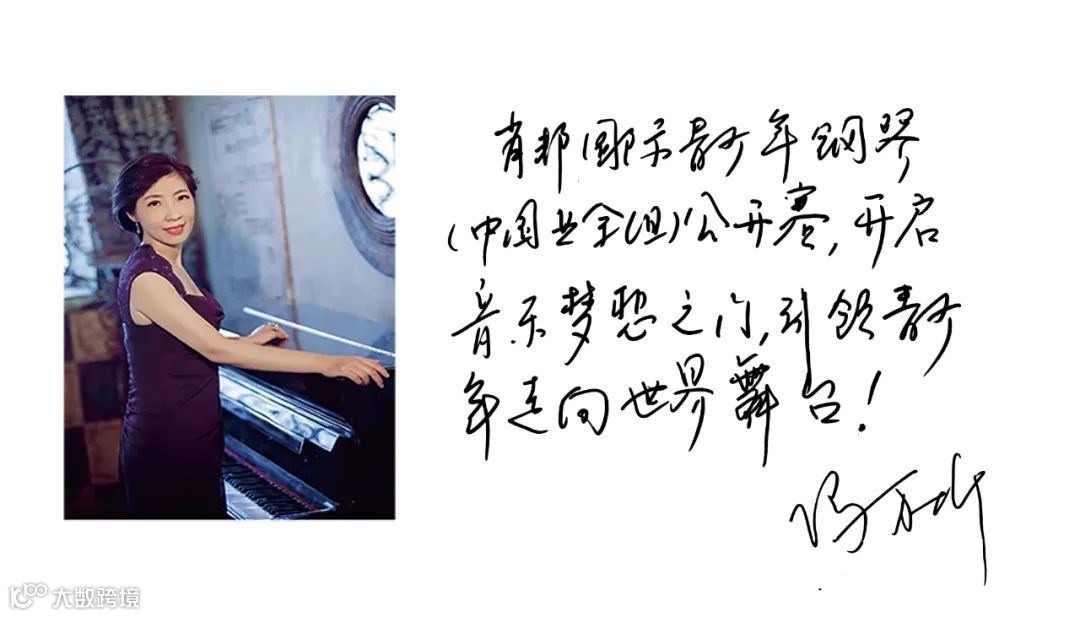 肖邦国际青少年钢琴
(中国业余组)公开赛,开启
音乐梦想之门,引领青少
年走向世界舞台!
大数跨境